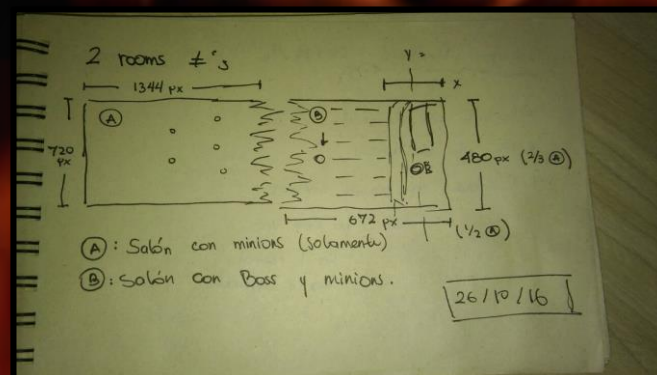 2 rooms ≠'s
1344 px
Y =
X
A
B
720 px
480 px (2/3 A)
672 px
(1/2 A)
A: Salón con minions (solamente)
B: Salón con Boss y minions.
26/10/16